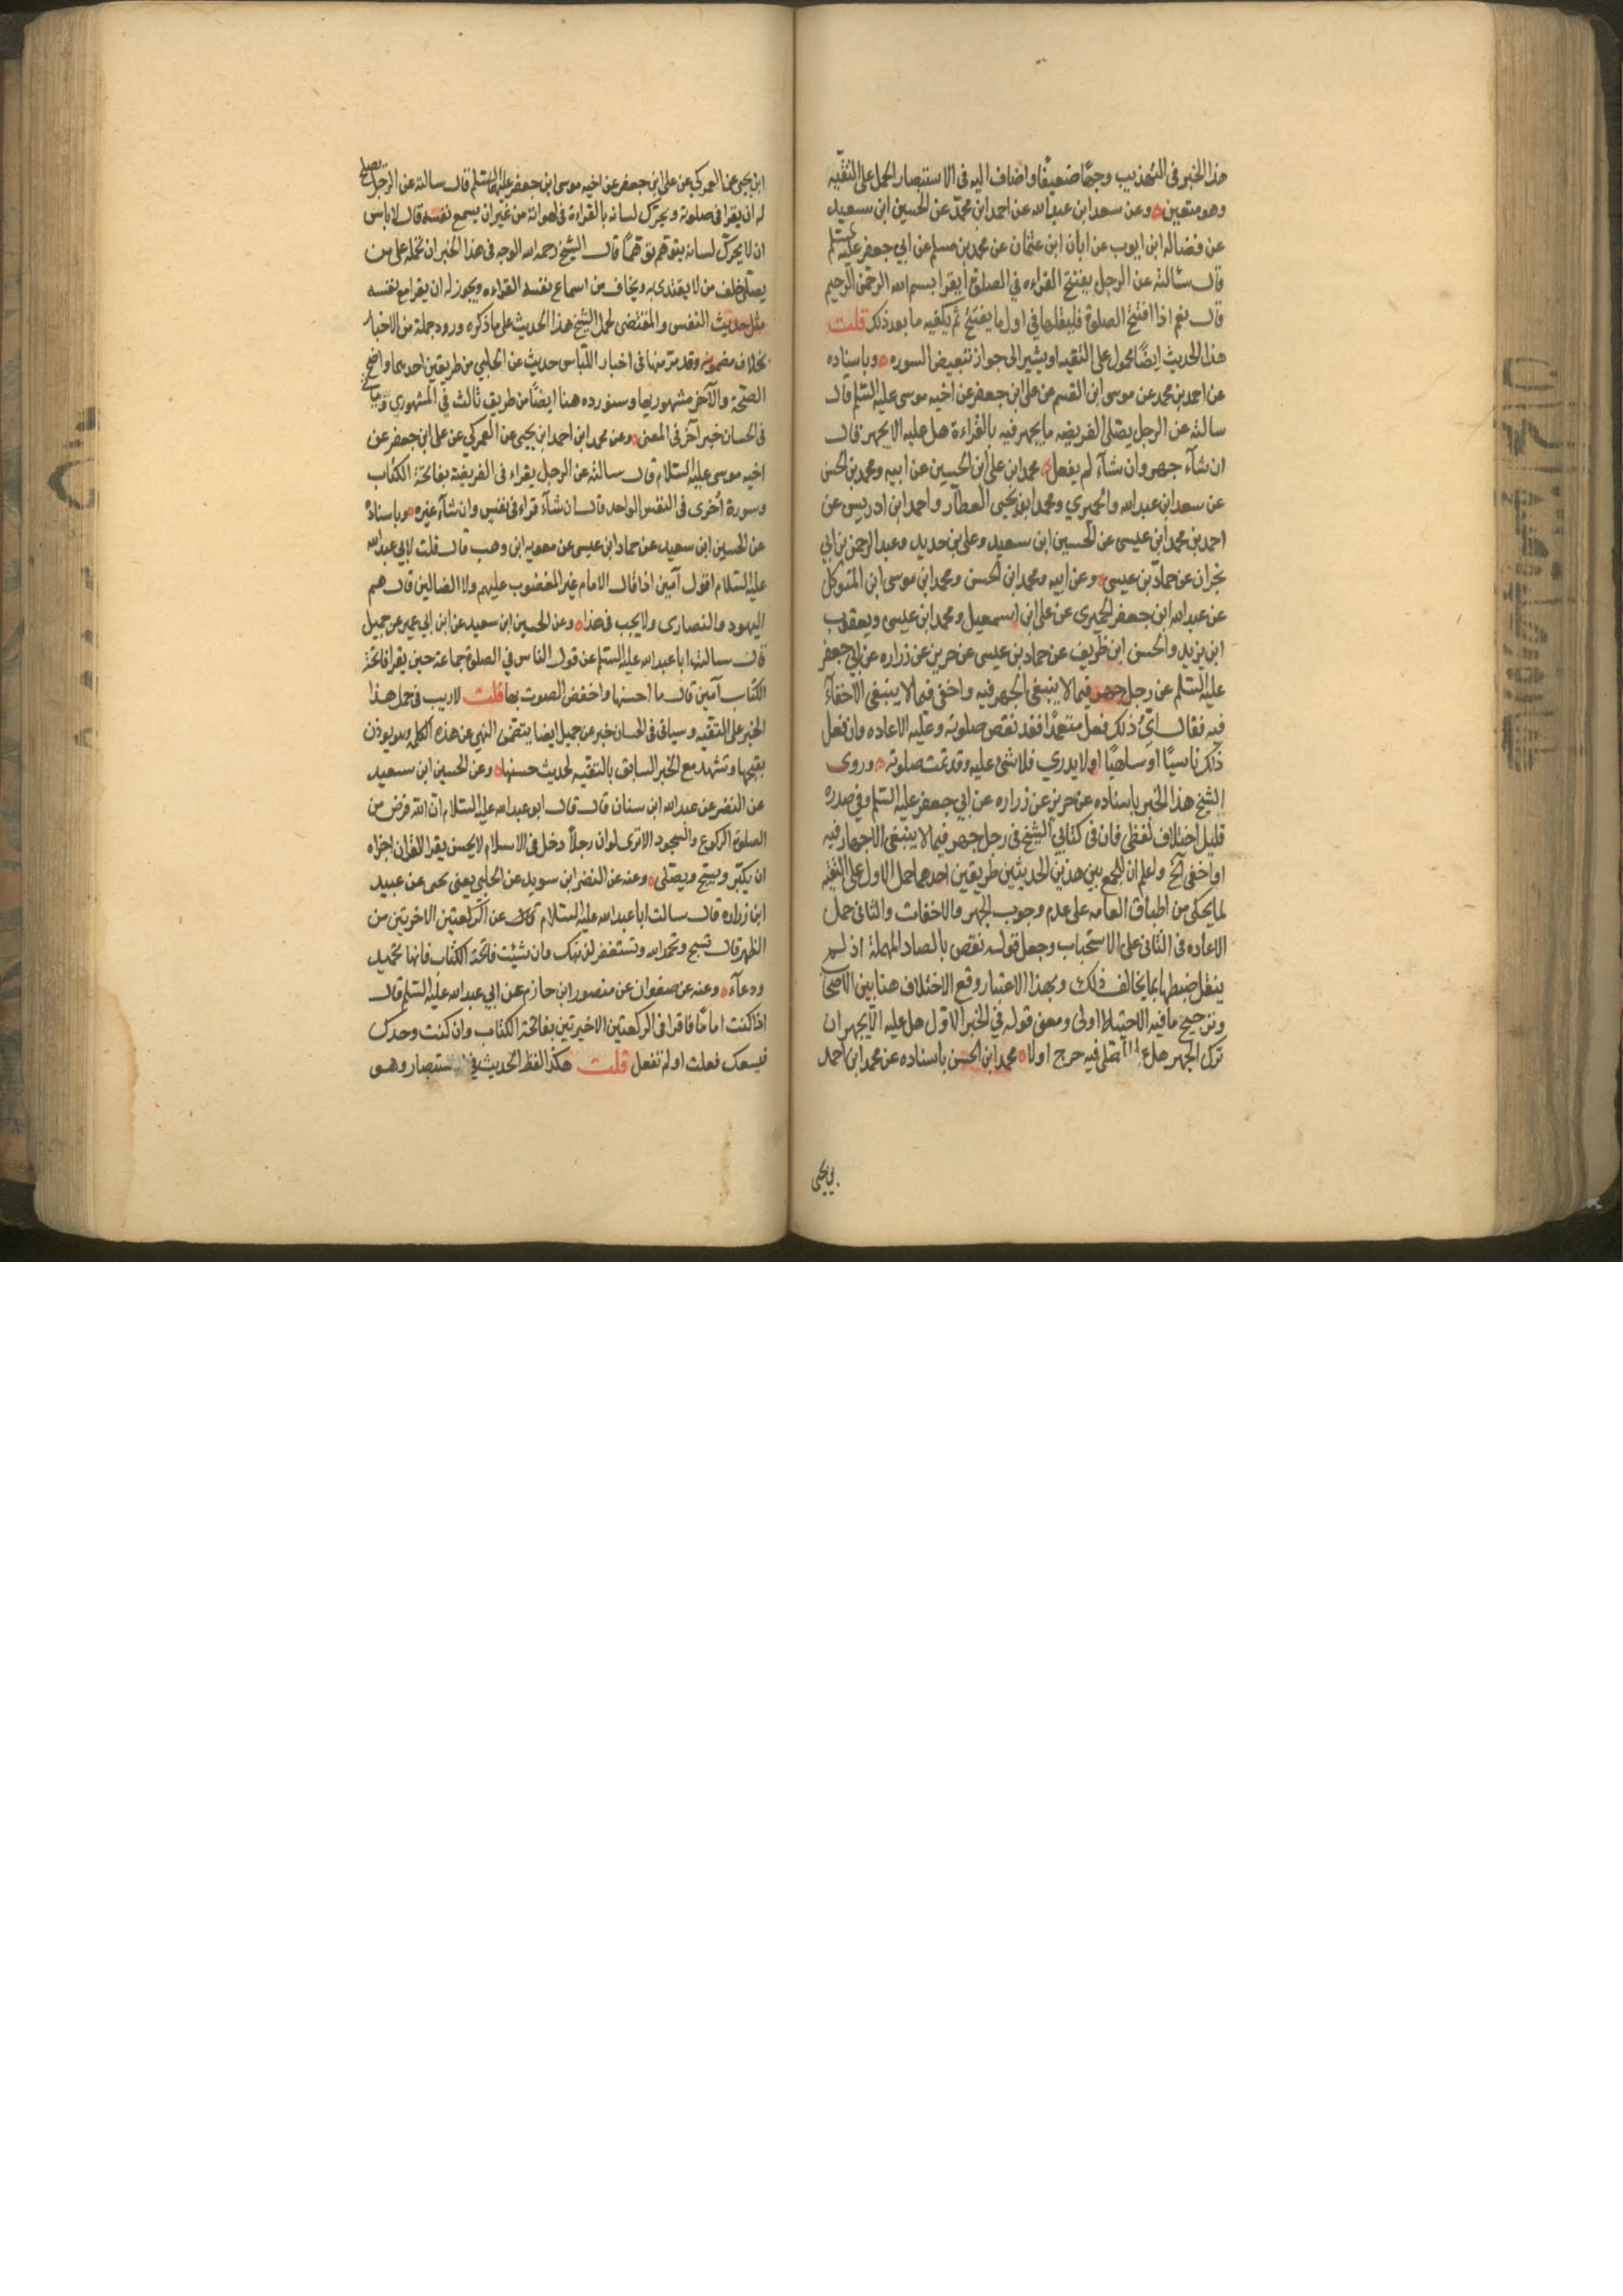 هذا الخبر فى التهذيب وجهًا ضعيفًا واضاف اليه فى الاستبصار الحمل على التقيّه
وهو متعين وعن سعد ابن عبد الله عن احمد ابن محمد عن الحسين ابن سعيد
عن فضاله ابن ايوب عن ابان ابن عثمان عن محمد بن مسلم عن ابي جعفر عليه السلم
قال سالته عن الرجل يفتتح القراءه في الصلوة ايقرا بسم الله الرحمن الرحيم
قال نعم اذا افتتح الصلوة فليقلها في اول ما يفتتح ثم يكفيه ما بعد ذلك قلت
هذا الحديث ايضًا محمول على التقيه او يشير الى جواز تبعيض السوره وباسناده
عن احمد بن محمد عن موسى ابن القسم عن على ابن جعفر عن اخيه موسى عليه السلم قال
سالته عن الرجل يصلى الفريضه ما يجهر فيه بالقراءة هل عليه الا يجهر قال
ان شآء جهر وان شآء لم يفعل محمد ابن على ابن الحسين عن ابيه ومحمد بن الحسن
عن سعد ابن عبد الله والحميري ومحمد ابن يحيى العطار واحمد ابن ادريس عن
احمد بن محمد ابن عيسى عن الحسين ابن سعيد وعلى بن حديد وعبد الرحمن بن ابي
نجران عن حماد بن عيسى وعن ابيه ومحمد ابن الحسن ومحمد ابن موسى ابن المتوكل
عن عبد الله ابن جعفر الحميرى عن على ابن اسمعيل ومحمد ابن عيسى ويعقوب
ابن يزيد والحسن ابن ظريف عن حماد بن عيسى عن حريز عن زراره عن ابي جعفر
عليه السلم عن رجل جهر فيما لا ينبغى الجهر فيه واخفى فيما لا ينبغى الاخفآء
فيه فقال ايّ ذلك فعل متعمدًا فقد نقص صلوته وعليه الاعاده وان فعل
ذلك ناسيًا او ساهيًا او لا يدري فلا شئ عليه وقد تمت صلوته وروى
الشيخ هذا الخبر باسناده عن حريز عن زراره عن ابي جعفر عليه السلم وفي صدره
قليل اختلاف لفظى فان فى كتابي الشيخ فى رجل جهر فيما لا ينبغى الاجهار فيه
او اخفى الخ واعلم ان للجمع بين هذين الحديثين طريقين احدهما حمل الاول على التقيه
لما يحكى من اطباق العامه على عدم وجوب الجهر والاخفات والثانى حمل
الاعاده فى الثانى على الاستحباب وجعل قوله نقص بالصاد المهملة اذ لم
ينقل ضبطها بما يخالف ذلك وبهذا الاعتبار وقع الاختلاف هنا بين الاصحا
وترجيح ما فيه الاحتياط اولى ومعنى قوله في الخبر الاول هل عليه الّا يجهر ان
ترك الجهر هل على المصلى فيه حرج او لا محمد ابن الحسن باسناده عن محمد ابن احمد
بن يحيى
ابن يحيى عن العمركي عن على ابن جعفر عن اخيه موسى ابن جعفر عليهما السلم قال سالته عن الرجل يصلح
له ان يقرا فى صلوته ويحرك لسانه بالقراءة فى لهواته من غير ان يسمع نفسه قال لا باس
ان لا يحرك لسانه يتوهم توهمًا قال الشيخ رحمه الله الوجه فى هذا الخبر ان نحمله على من
يصلى خلف من لا يقتدى به ويخاف من اسماع نفسه القراءه ويجوز له ان يقرا مع نفسه
مثل حديث النفس والمقتضى لحمل الشيخ هذا الحديث على ما ذكره ورود جملة من الاخبار
بخلاف مضمونه وقد مر منها فى اخبار اللباس حديث عن الحلبي من طريقين احدهما واضح
الصحة والآخر مشهوريها وسنورده هنا ايضًا من طريق ثالث في المشهوري وياتي
فى الحسان خبر آخر فى المعنى وعن محمد ابن احمد ابن يحيى عن العمركي عن على ابن جعفر عن
اخيه موسى عليه السلام قال سالته عن الرجل يقراء فى الفريضة بفاتحة الكتاب
وسورة أخرى فى النفس الواحد قال ان شآء قراء فى نفس وان شآء غيره وباسناده
عن الحسين ابن سعيد عن حماد ابن عيسى عن معويه ابن وهب قال قلت لابي عبد الله
عليه السلام اقول آمين اذا قال الامام غير المغضوب عليهم ولا الضالين قال هم
اليهود والنصارى ولا يجب فى هذا وعن الحسين ابن سعيد عن ابن ابي عمير عن جميل
قال سالت ابا عبد الله عليه السلم عن قول الناس في الصلوة جماعة حين يقرا فاتحة
الكتاب آمين قال ما احسنها واخفض الصوت بها قلت لا ريب فى حمل هذا
الخبر على التقيه وسياتى فى الحسان خبر عن جميل ايضا يتضمن النهي عن هذه الكلمه وهو يوذن
بقبحها وتشهد مع الخبر السابق بالتقيه لحديث حسنها وعن الحسين ابن سعيد
عن النضر عن عبد الله ابن سنان قال قال ابو عبد الله عليه السلام ان الله فرض من
الصلوة الركوع والسجود الا ترى لو ان رجلاً دخل فى الاسلام لا يحسن يقرا القران اجزاه
ان يكبّر ويسبح ويصلى وعنه عن النضر ابن سويد عن الحلبي يعنى يحيى عن عبيد
ابن زراره قال سالت ابا عبد الله عليه السلام عن الركعتين الاخرتين من
الظهر قال تسبح وتحمد الله وتستغفر لذنبك وان شئت فاتحة الكتاب فانها تحميد
ودعآء وعنه عن صفوان عن منصور ابن حازم عن ابي عبد الله عليه السلم قال
اذا كنت امامًا فاقرا فى الركعتين الاخيرتين بفاتحة الكتاب وان كنت وحدك
فيسعك فعلت او لم تفعل قلت هكذا لفظ الحديث في الاستبصار وهو